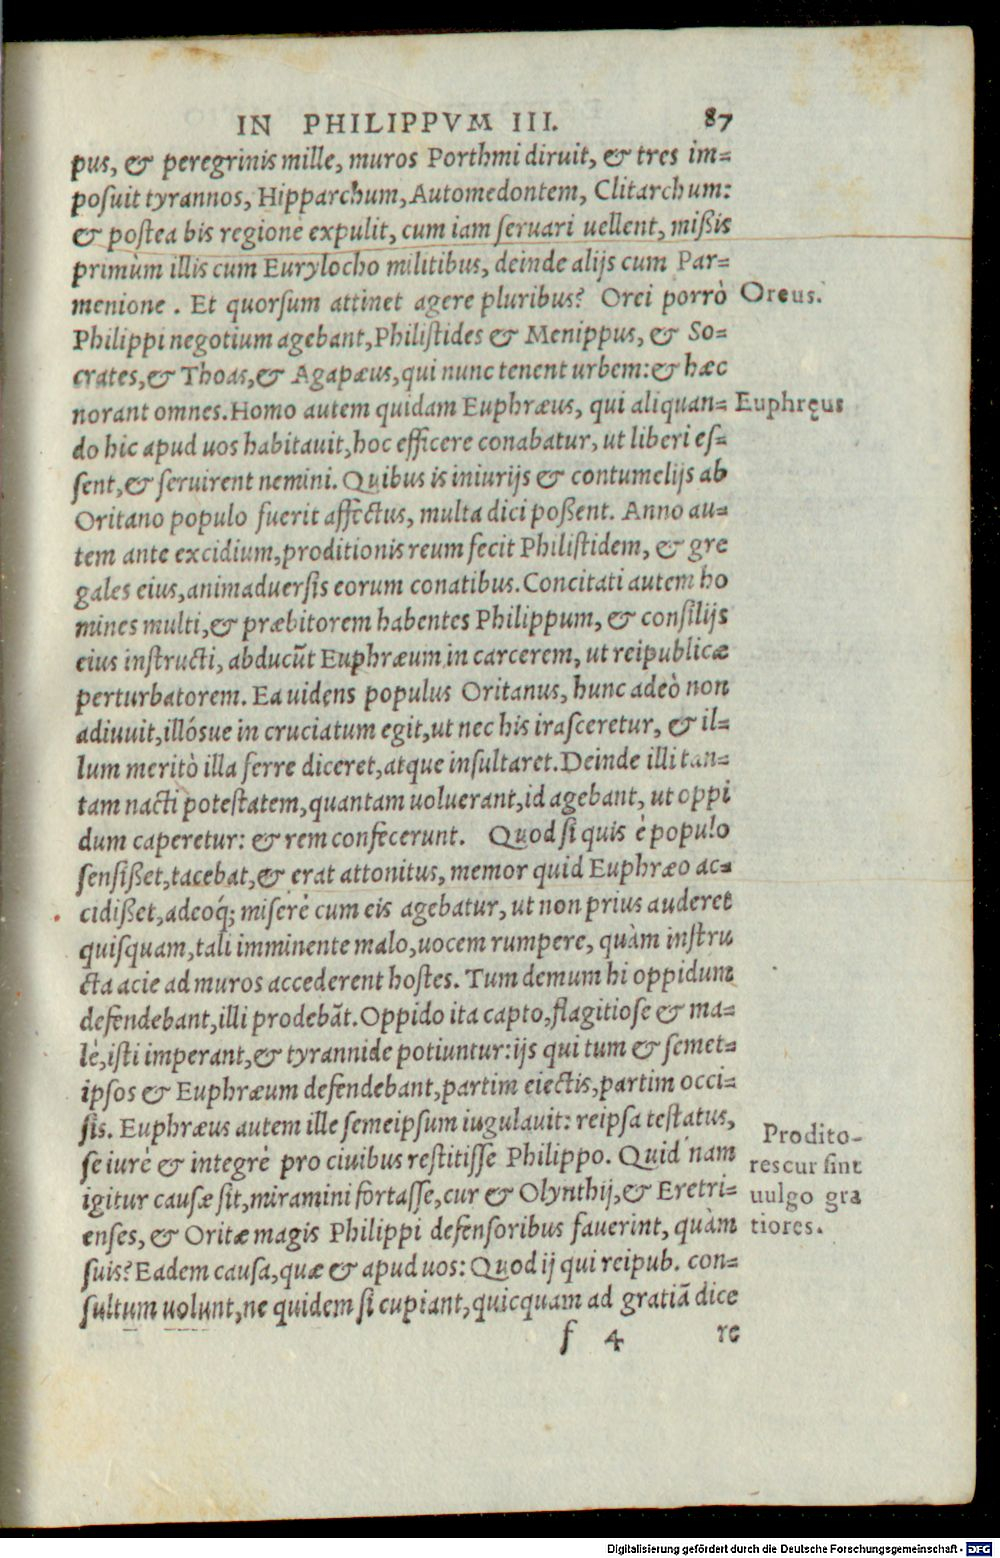 IN PHILIPPVM III. 87
pus, & peregrinis mille, muros Porthmi diruit, & tres im=
posuit tyrannos, Hipparchum, Automedontem, Clitarchum:
& postea bis regione expulit, cum iam seruari uellent, mißis
primùm illis cum Eurylocho militibus, deinde alijs cum Par=
menione. Et quorsum attinet agere pluribus? Orei porrò
Oreus.
Philippi negotium agebant, Philistides & Menippus, & So=
crates, & Thoas, & Agapæus, qui nunc tenent urbem: & hæc
norant omnes. Homo autem quidam Euphræus, qui aliquan=
Euphręus
do hic apud uos habitauit, hoc efficere conabatur, ut liberi es=
sent, & seruirent nemini. Quibus is iniurijs & contumelijs ab
Oritano populo fuerit affectus, multa dici poßent. Anno au=
tem ante excidium, proditionis reum fecit Philistidem, & gre
gales eius, animaduersis eorum conatibus. Concitati autem ho
mines multi, & præbitorem habentes Philippum, & consilijs
eius instructi, abducūt Euphræum in carcerem, ut reipublicæ
perturbatorem. Ea uidens populus Oritanus, hunc adeò non
adiuuit, illósue in cruciatum egit, ut nec his irasceretur, & il=
lum meritò illa ferre diceret, atque insultaret. Deinde illi tan=
tam nacti potestatem, quantam uoluerant, id agebant, ut oppi
dum caperetur: & rem confecerunt. Quod si quis è populo
sensißet, tacebat, & erat attonitus, memor quid Euphræo ac=
cidißet, adeoq́; miserè cum eis agebatur, ut non prius auderet
quisquam, tali imminente malo, uocem rumpere, quàm instru
cta acie ad muros accederent hostes. Tum demum hi oppidum
defendebant, illi prodebāt. Oppido ita capto, flagitiose & ma=
lè, isti imperant, & tyrannide potiuntur: ijs qui tum & semet=
ipsos & Euphræum defendebant, partim eiectis, partim occi=
sis. Euphræus autem ille semeipsum iugulauit: reipsa testatus,
se iurè & integrè pro ciuibus restitisse Philippo. Quid nam
igitur causæ sit, miramini fortasse, cur & Olynthij, & Eretri=
enses, & Oritæ magis Philippi defensoribus fauerint, quàm
suis? Eadem causa, quæ & apud uos: Quod ij qui reipub. con=
sultum uolunt, ne quidem si cupiant, quicquam ad gratiā dice
Prodito-
res cur sint
uulgo gra
tiores.
f 4 re
Digitalisierung gefördert durch die Deutsche Forschungsgemeinschaft - DFG